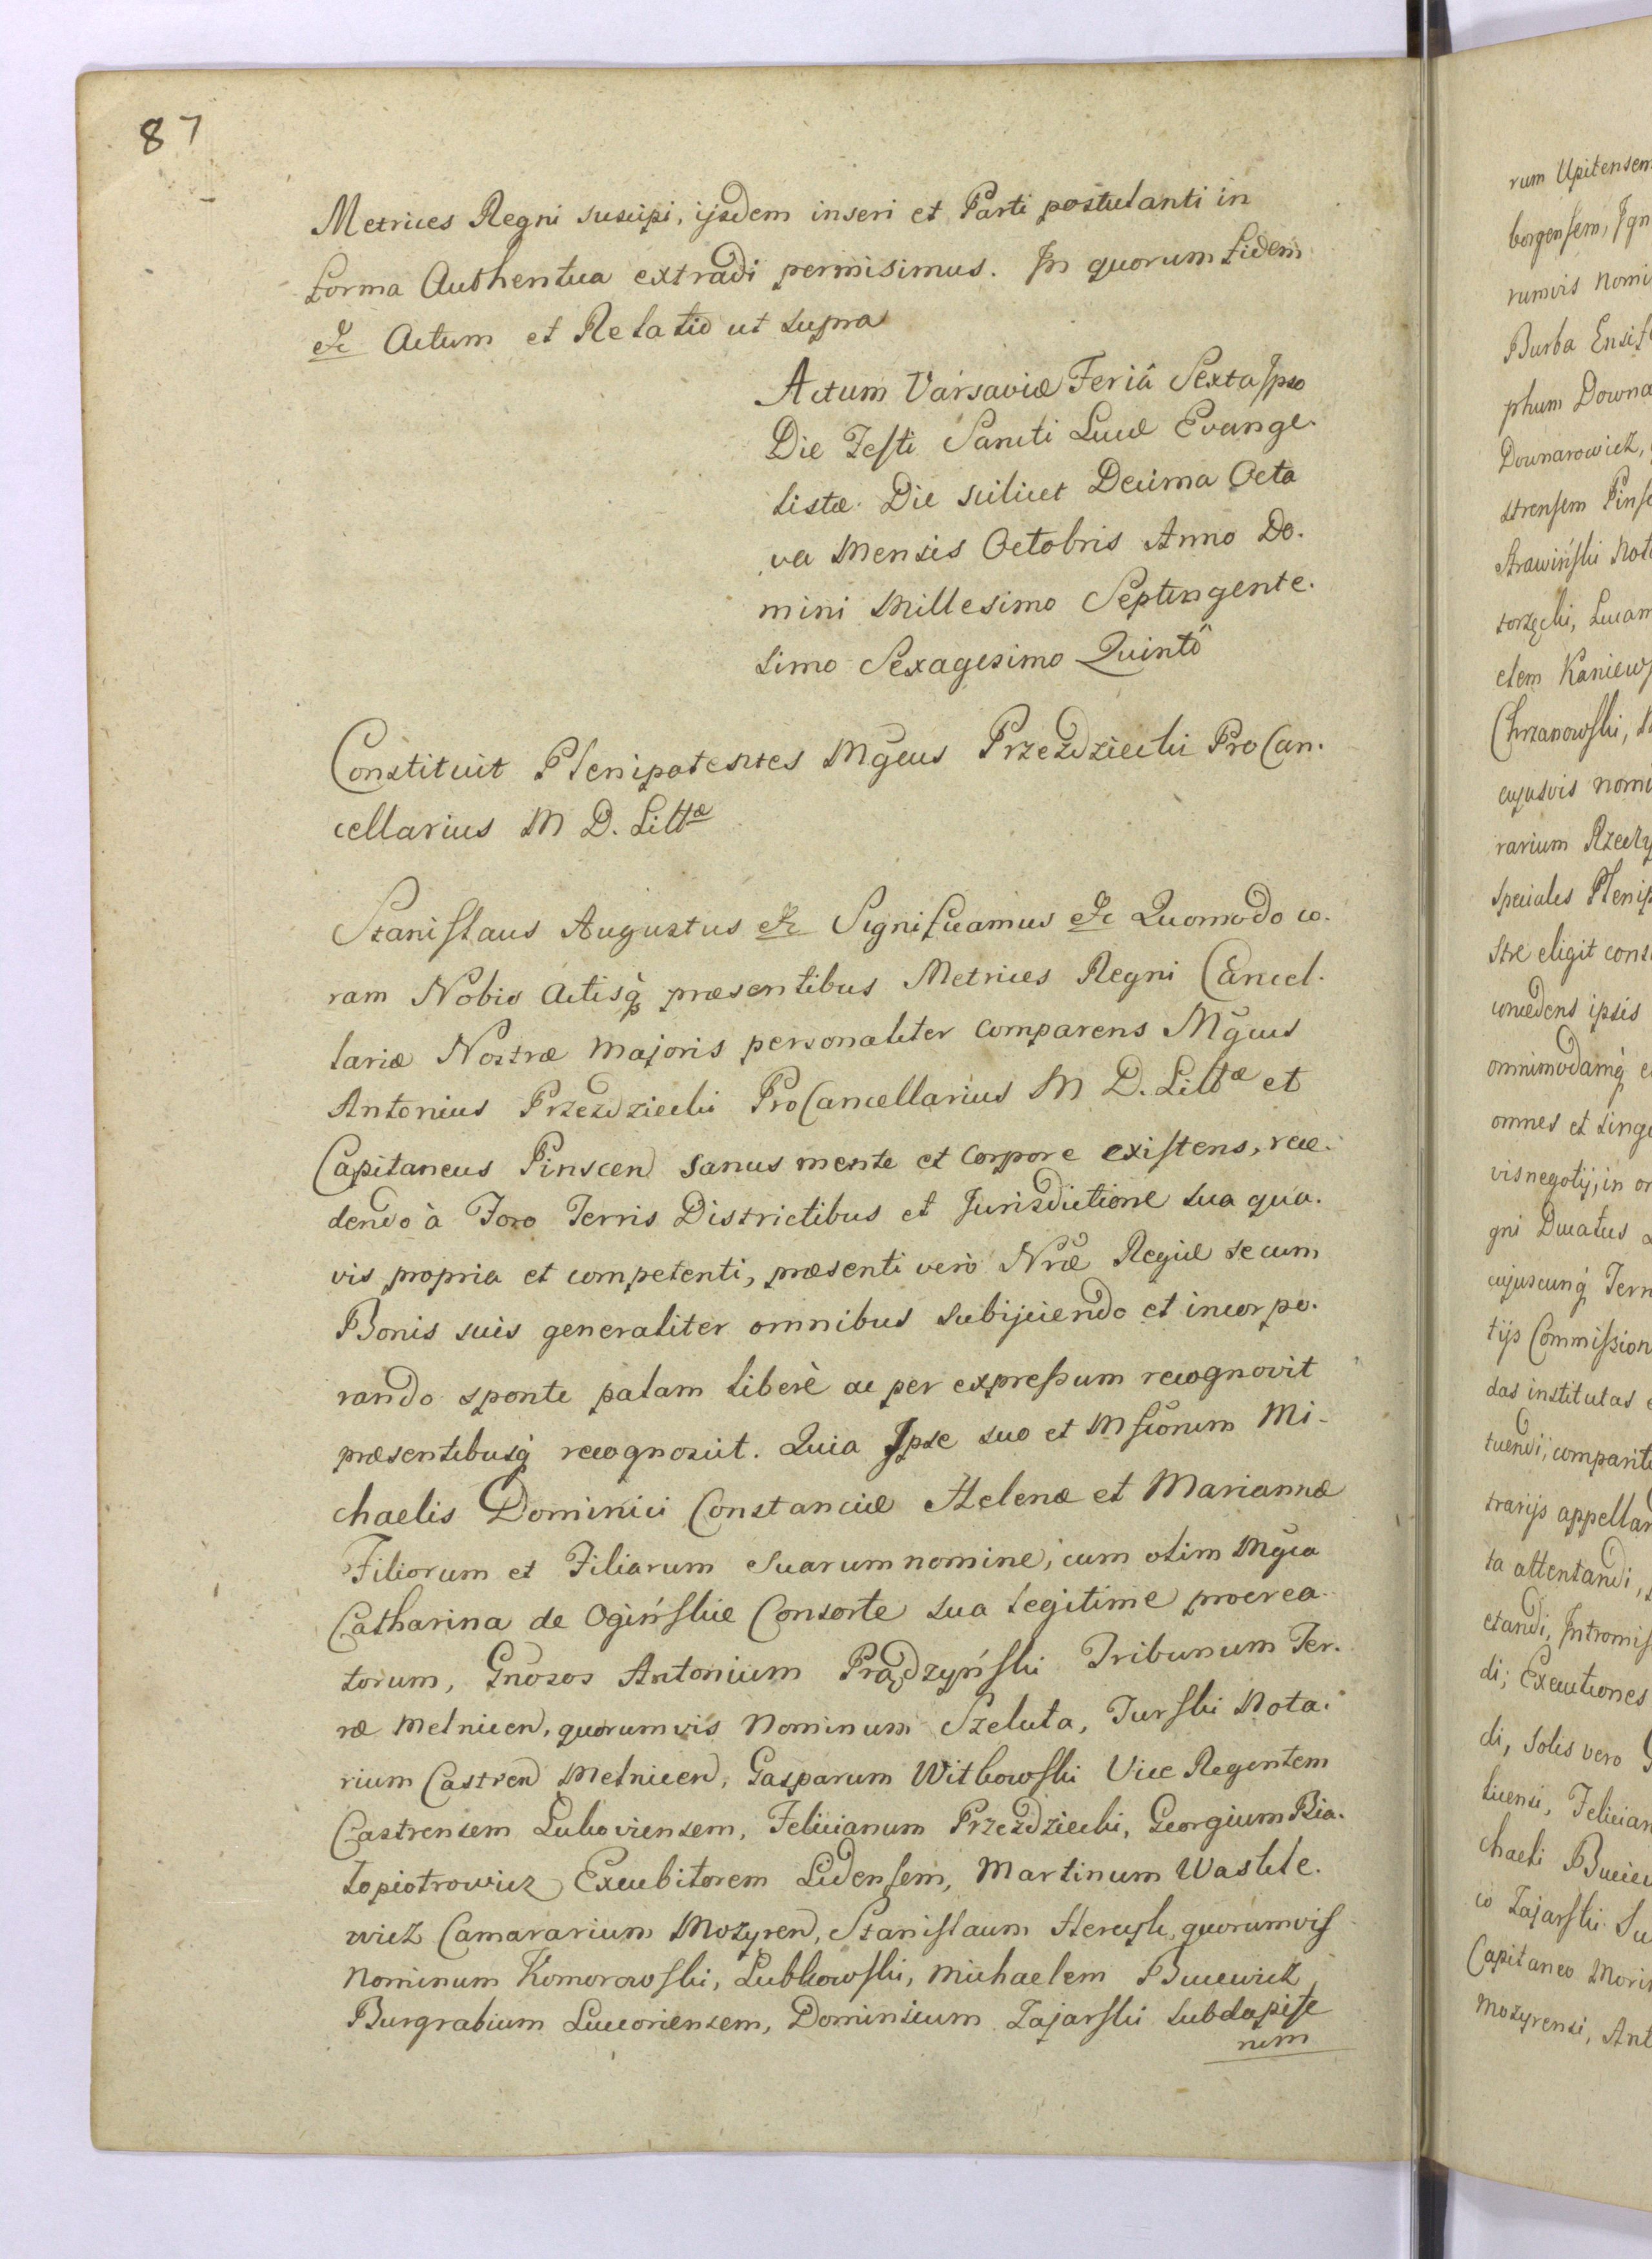 87
Metrices Regni suscipi, ijsdem inseri et Parti postulanti in
forma Authentica extradi permisimus. In quorum fidem
etc Actum et Relatio ut supra
Actum Varsaviæ Feriâ Sexta Ipso
Die Festi Sancti Lucæ Evange-
listæ. Die scilicet Decima Octa
va Mensis Octobris Anno Do-
mini Millesimo Septingente-
simo Sexagesimo Quintô
Constituit Plenipotentes Mg̃cus Przezdziecki ProCan-
cellarius M D. Littæ
Stanislaus Augustus etc Significamus etc Quomodo co-
ram Nobis Actisq̀ præsentibus Metrices Regni Cancel-
lariæ Nostræ Majoris personaliter comparens Mg̃cus
Antonius Przezdziecki ProCancellarius M D. Littæ et
Capitaneus Pinscen sanus mente et Corpore existens, rece-
dendo à Foro Terris Districtibus et Jurisdictione sua qua-
vis propria et competenti, præsenti verò Nr̃æ Regiæ se cum
Bonis suis generaliter omnibus subijciendo et incorpo-
rando sponte palam liberè ac per expressum recognovit
præsentibusq̀ recognoscit. Quia Ipse suo et Msciorum Mi-
chaelis Dominici Constanciæ Helenæ et Mariannæ
Filiorum et Filiarum suarum nomine, cum olim Mg̃ca
Catharina de Ogińskie Consorte sua legitime procrea-
torum, Gñosos Antonium Prądzyński Tribunum Ter-
ræ Melnicen, quorumvis Nominum Szeluta, Turski Nota-
rium Castren Melnicen, Gasparum Witkowski Vice Regentem
Castrensem Lukoviensem, Felicianum Przezdziecki, Georgium Bia-
łopiotrowicz Excubitorem Lidensem, Martinum Wasile-
wicz Camararium Mozyren, Stanislaum Hercyk, quorumvis
Nominum Komorowski, Lubkowski, Michaelem Bucewicz
Burgrabium Lucoriensem, Dominicum Zajarski Subdapife
rum
rum Upitensem
borgensem, Ign
rumvis Nomi
Burba Ensif
phum Downa
Downarowicz,
strensem Pinsc
Strawiński Not
torzecki, Lucam
ctem Kaniews
Chrzanowski,
cujusvis nomi
rarium Rzeczy
speciales Plenip
stre eligit const
concedens ipsis
omnimodamq̀ e
omnes et singu
vis negotij, in or
gni Ducatus
cujuscunq̀ Terr
tijs Commission
das institutas
tuendi, compariti
trarijs appellan
ta attentandi,
ctandi, Intromis
di; Executiones
di, solis vero
licensi, Felician
chaeli Bucew
co Zajarski Su
Capitaneo
Mozyrensi, Ant